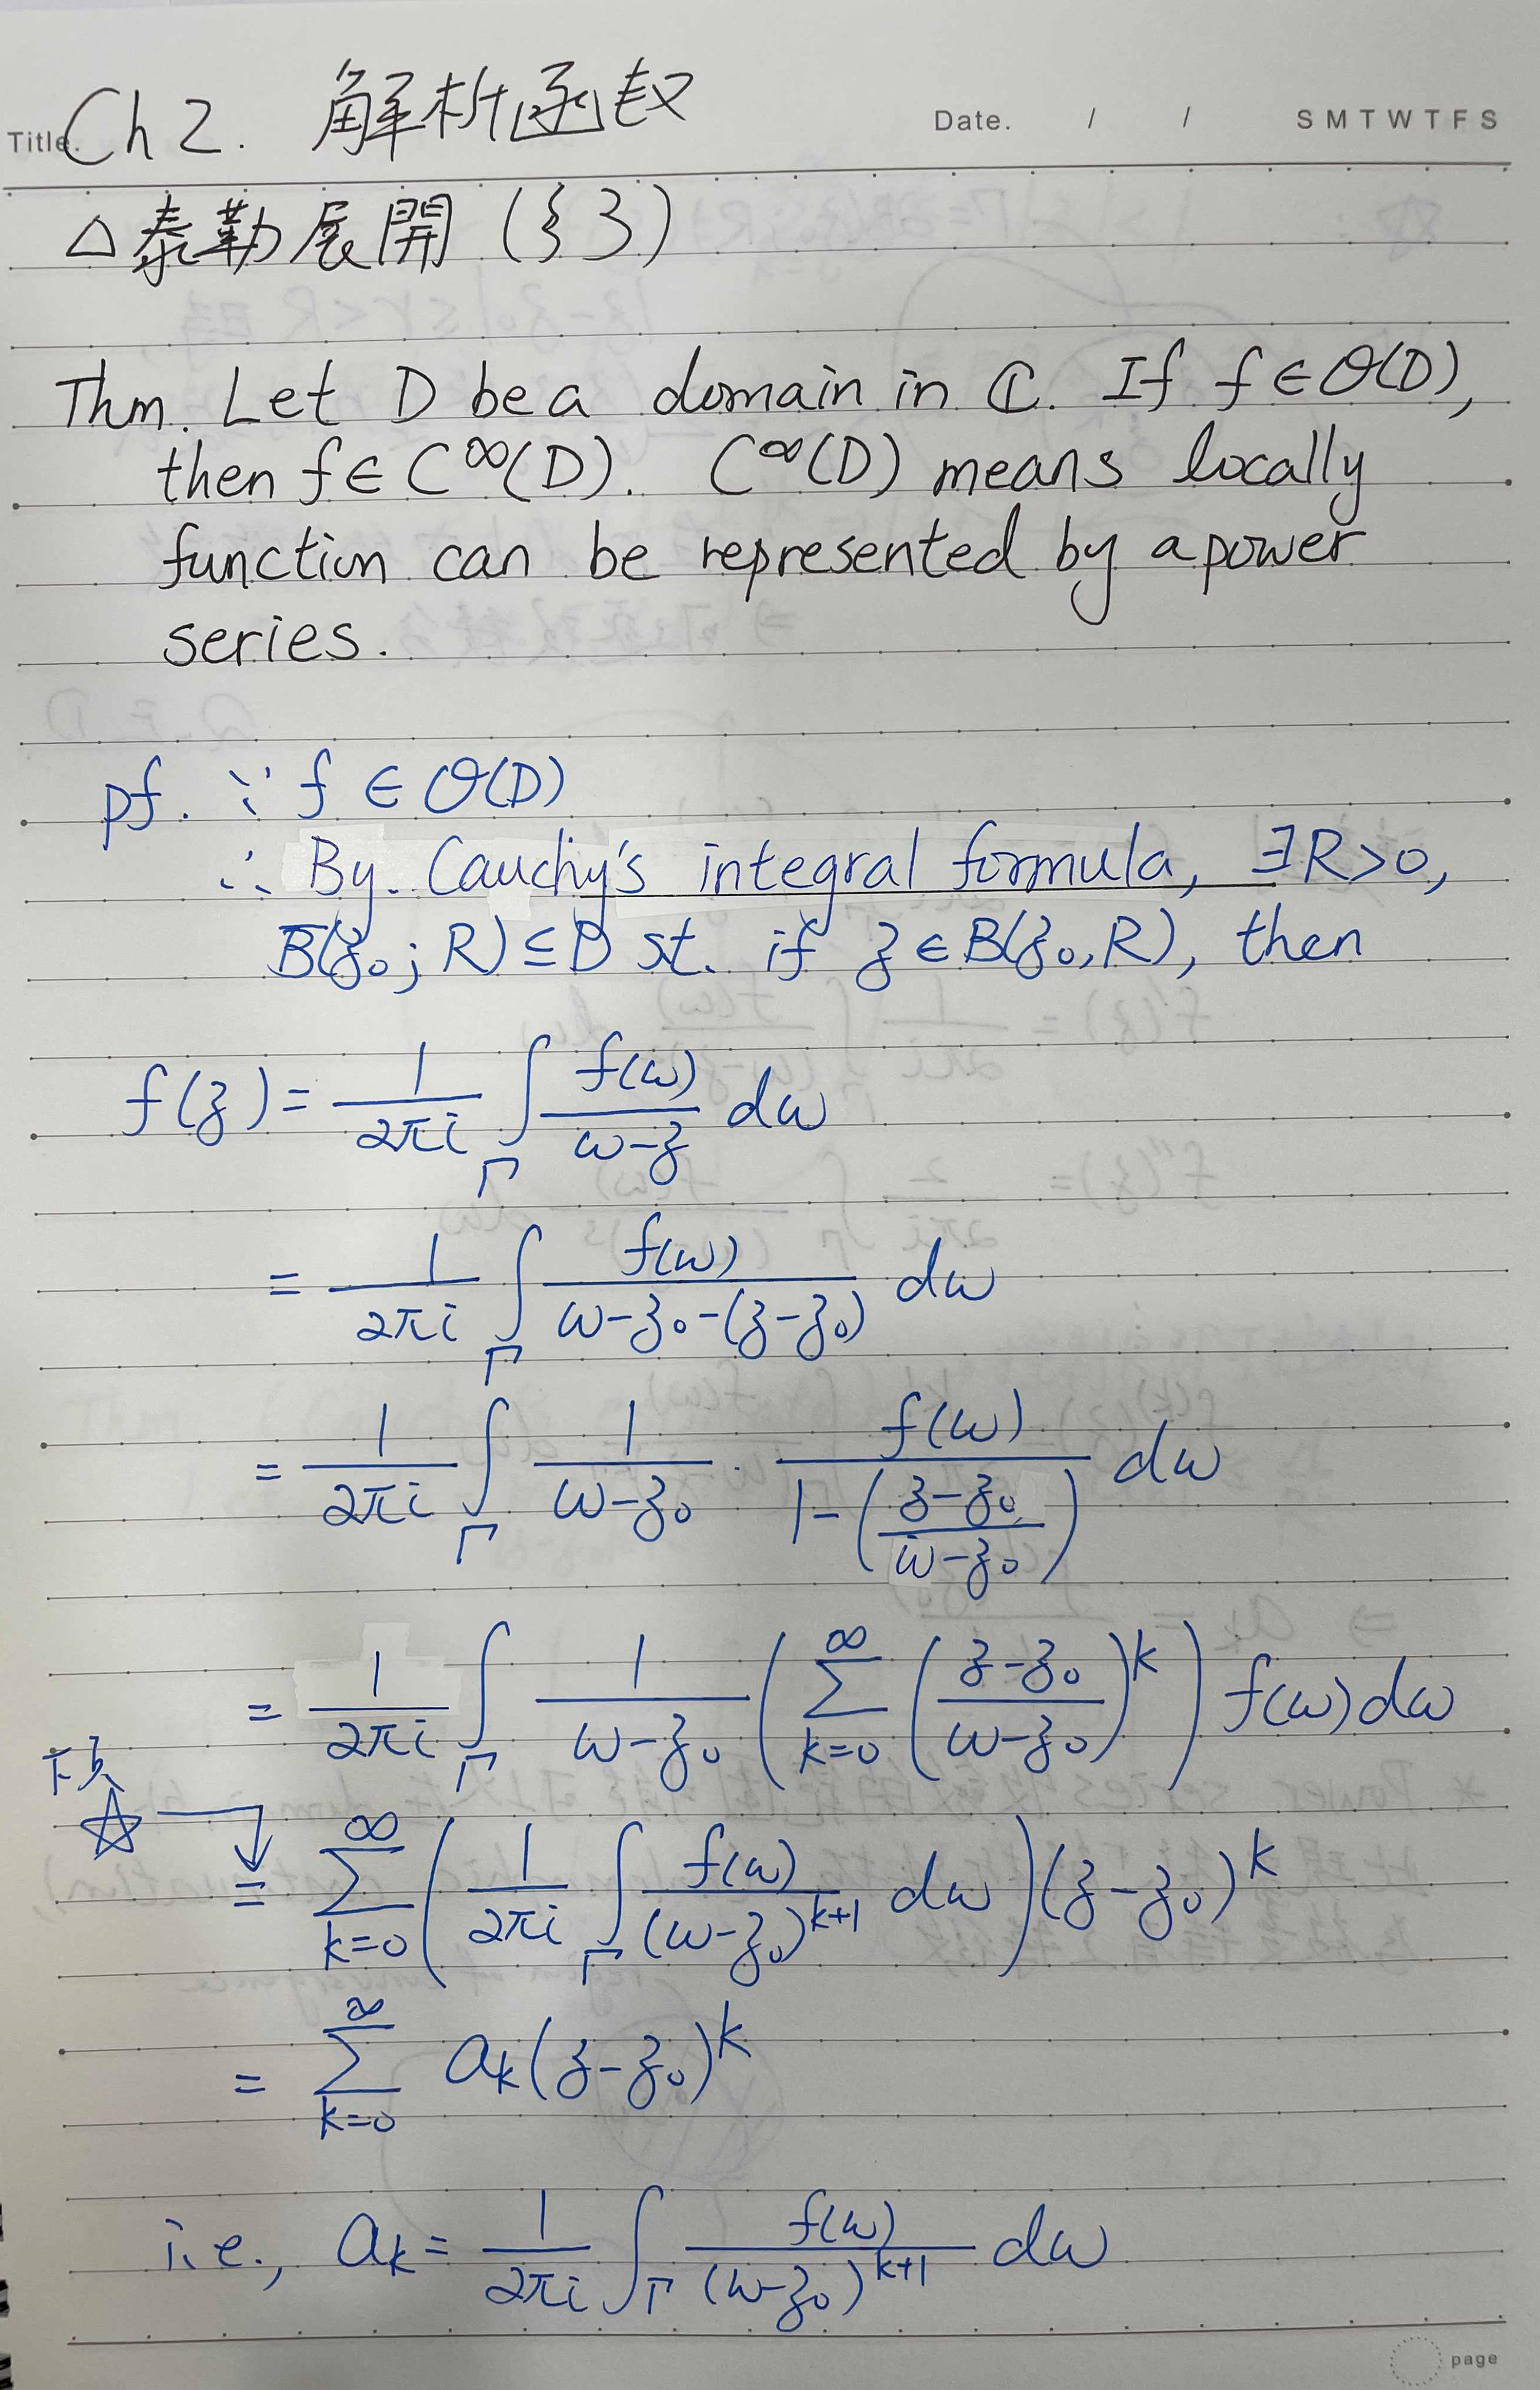 Title.
Ch 2. 解析函数
Date. / / S M T W T F S
△ 泰勒展開 (§3)
Thm. Let D be a domain in ℂ. If f ∈ 𝒪(D),
then f ∈ C^∞(D). C^∞(D) means locally
function can be represented by a power
series.
pf. ∵ f ∈ 𝒪(D)
∴ By. Cauchy's integral formula, ∃R>0,
B̅(z₀; R) ⊆ D st. if z ∈ B(z₀, R), then
f(z) = \frac{1}{2πi} ∫_Γ \frac{f(ω)}{ω-z} dω
= \frac{1}{2πi} ∫_Γ \frac{f(ω)}{ω-z₀-(z-z₀)} dω
= \frac{1}{2πi} ∫_Γ \frac{1}{ω-z₀} · \frac{f(ω)}{1-(\frac{z-z₀}{ω-z₀})} dω
= \frac{1}{2πi} ∫_Γ \frac{1}{ω-z₀} (∑_{k=0}^{∞} (\frac{z-z₀}{ω-z₀})^k) f(ω) dω
下頁
☆ → = ∑_{k=0}^{∞} (\frac{1}{2πi} ∫_Γ \frac{f(ω)}{(ω-z₀)^{k+1}} dω) (z-z₀)^k
= ∑_{k=0}^{∞} a_k (z-z₀)^k
i.e., a_k = \frac{1}{2πi} ∫_Γ \frac{f(ω)}{(ω-z₀)^{k+1}} dω
page